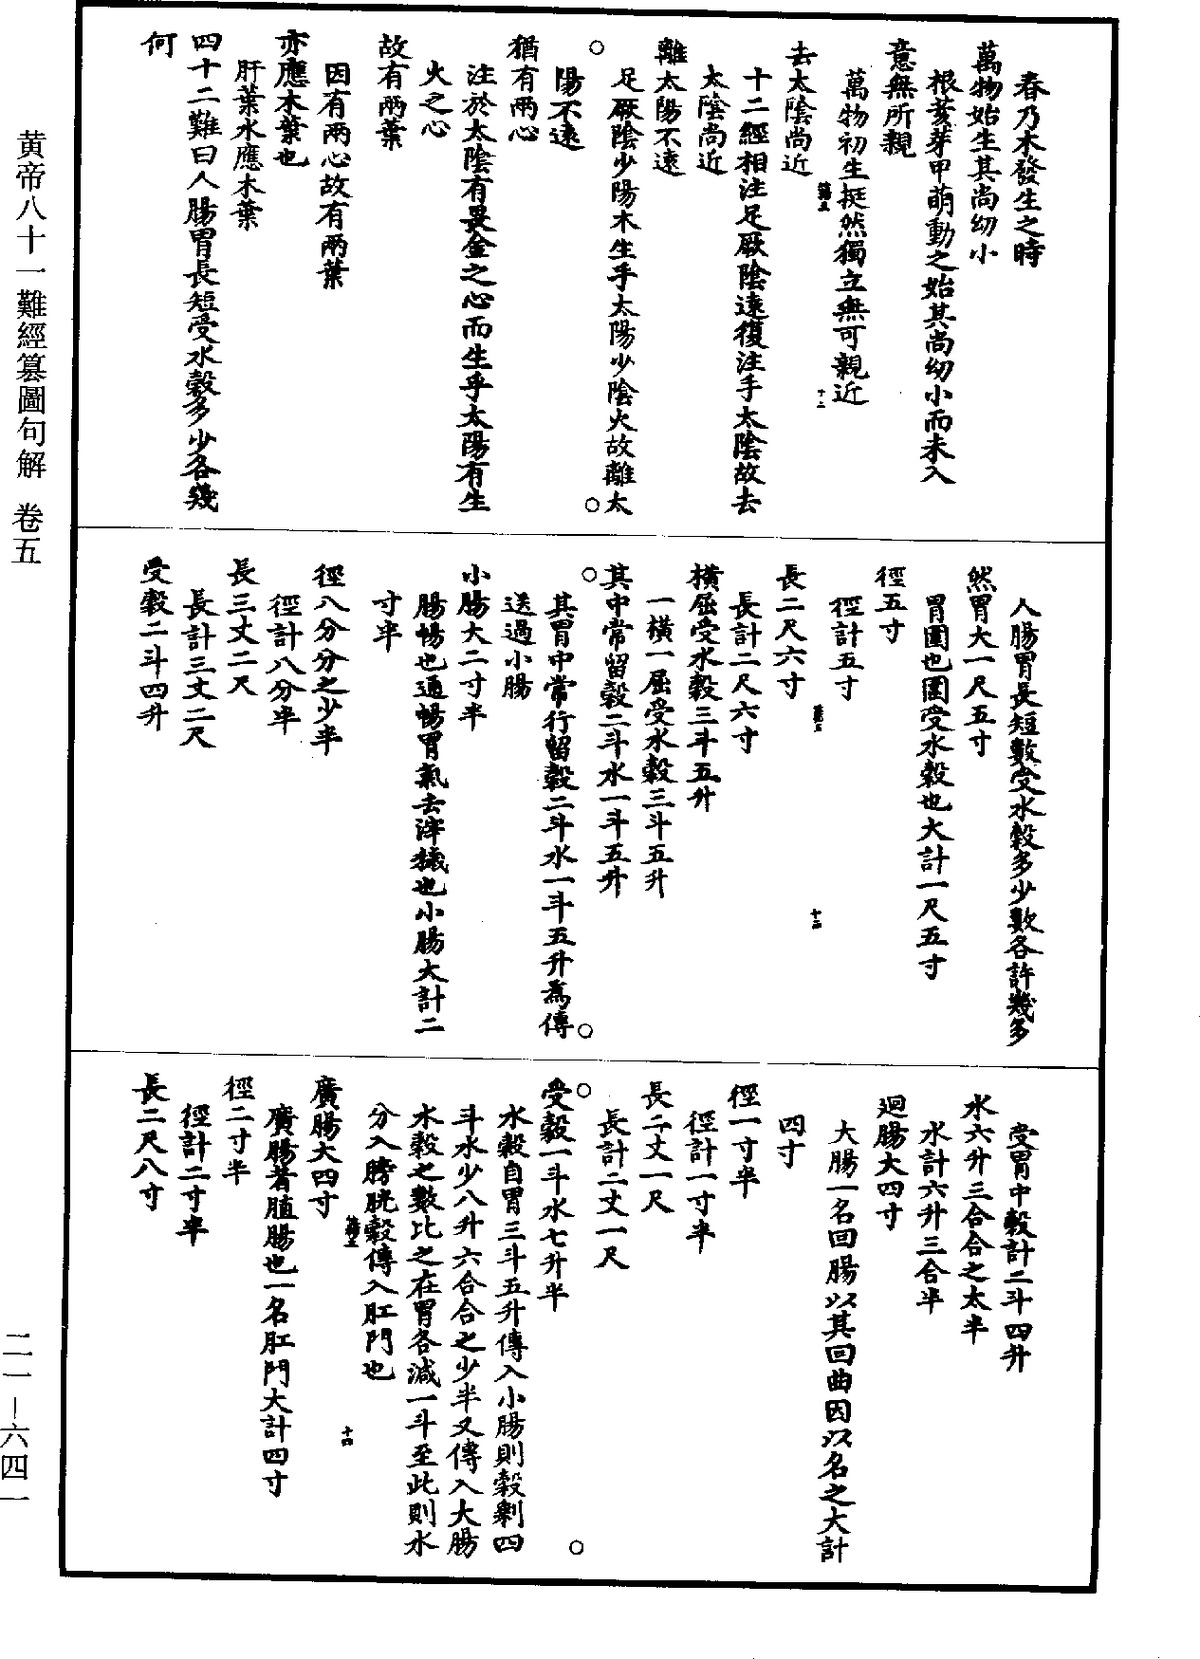 春乃木發生之時
萬物始生其尚幼小
根荄芽甲萌動之始其尚幼小而未入
意無所親
萬物初生挺然獨立無可親近
去太陰尚近
十二經相注足厥陰遠復注手太陰故去
太陰尚近
離太陽不遠
足厥陰少陽木生乎太陽少陰火故離太
陽不遠
猶有兩心
注於太陰有畏金之心而生乎太陽有生
火之心
故有兩葉
因有兩心故有兩葉
亦應木葉也
肝葉水應木葉
四十二難曰人腸胃長短受水穀多少各幾
何
人腸胃長短數受水穀多少數各許幾多
然胃大一尺五寸
胃圍也圍受水穀也大計一尺五寸
徑五寸
徑計五寸
長二尺六寸
長計二尺六寸
橫屈受水穀三斗五升
一橫一屈受水穀三斗五升
其中常留穀二斗水一斗五升
其胃中常行留穀二斗水一斗五升爲傳
送過小腸
小腸大二寸半
腸暢也通暢胃氣去滓穢也小腸大計二
寸半
徑八分分之少半
徑計八分半
長三丈二尺
長計三丈二尺
受穀二斗四升
受胃中穀計二斗四升
水六升三合合之太半
水計六升三合半
迴腸大四寸
大腸一名回腸以其回曲因以名之大計
四寸
徑一寸半
徑計一寸半
長二丈一尺
長計二丈一尺
受穀一斗水七升半
水穀自胃三斗五升傳入小腸則穀剩四
斗水少八升六合合之少半又傳入大腸
水穀之數比之在胃各減一斗至此則水
分入膀胱穀傳入肛門也
廣腸大四寸
廣腸者䐈腸也一名肛門大計四寸
徑二寸半
徑計二寸半
長二尺八寸
黄帝八十一難經纂圖句解 卷五
二一—六四一
十二
十三
十四